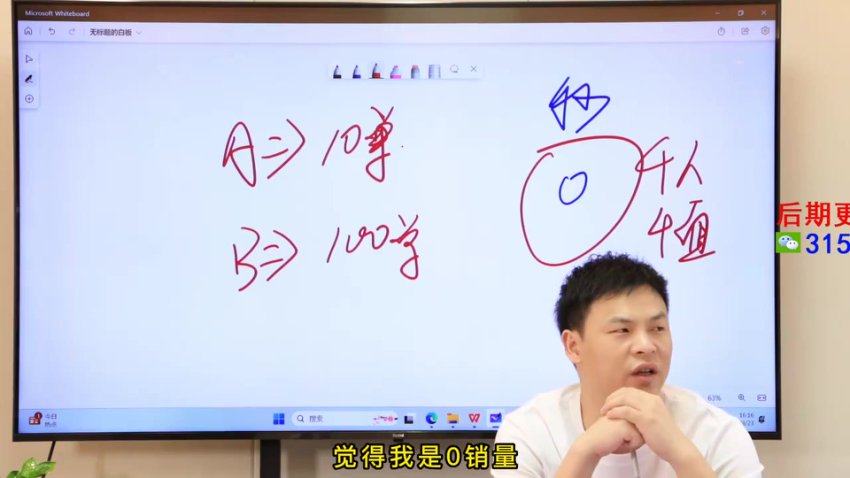 Microsoft Whiteboard
无标题的白板
A => 10单
B => 100单
0
千人
千面
后期更
315
63%
今日
热点
搜索
16:16
觉得我是0销量